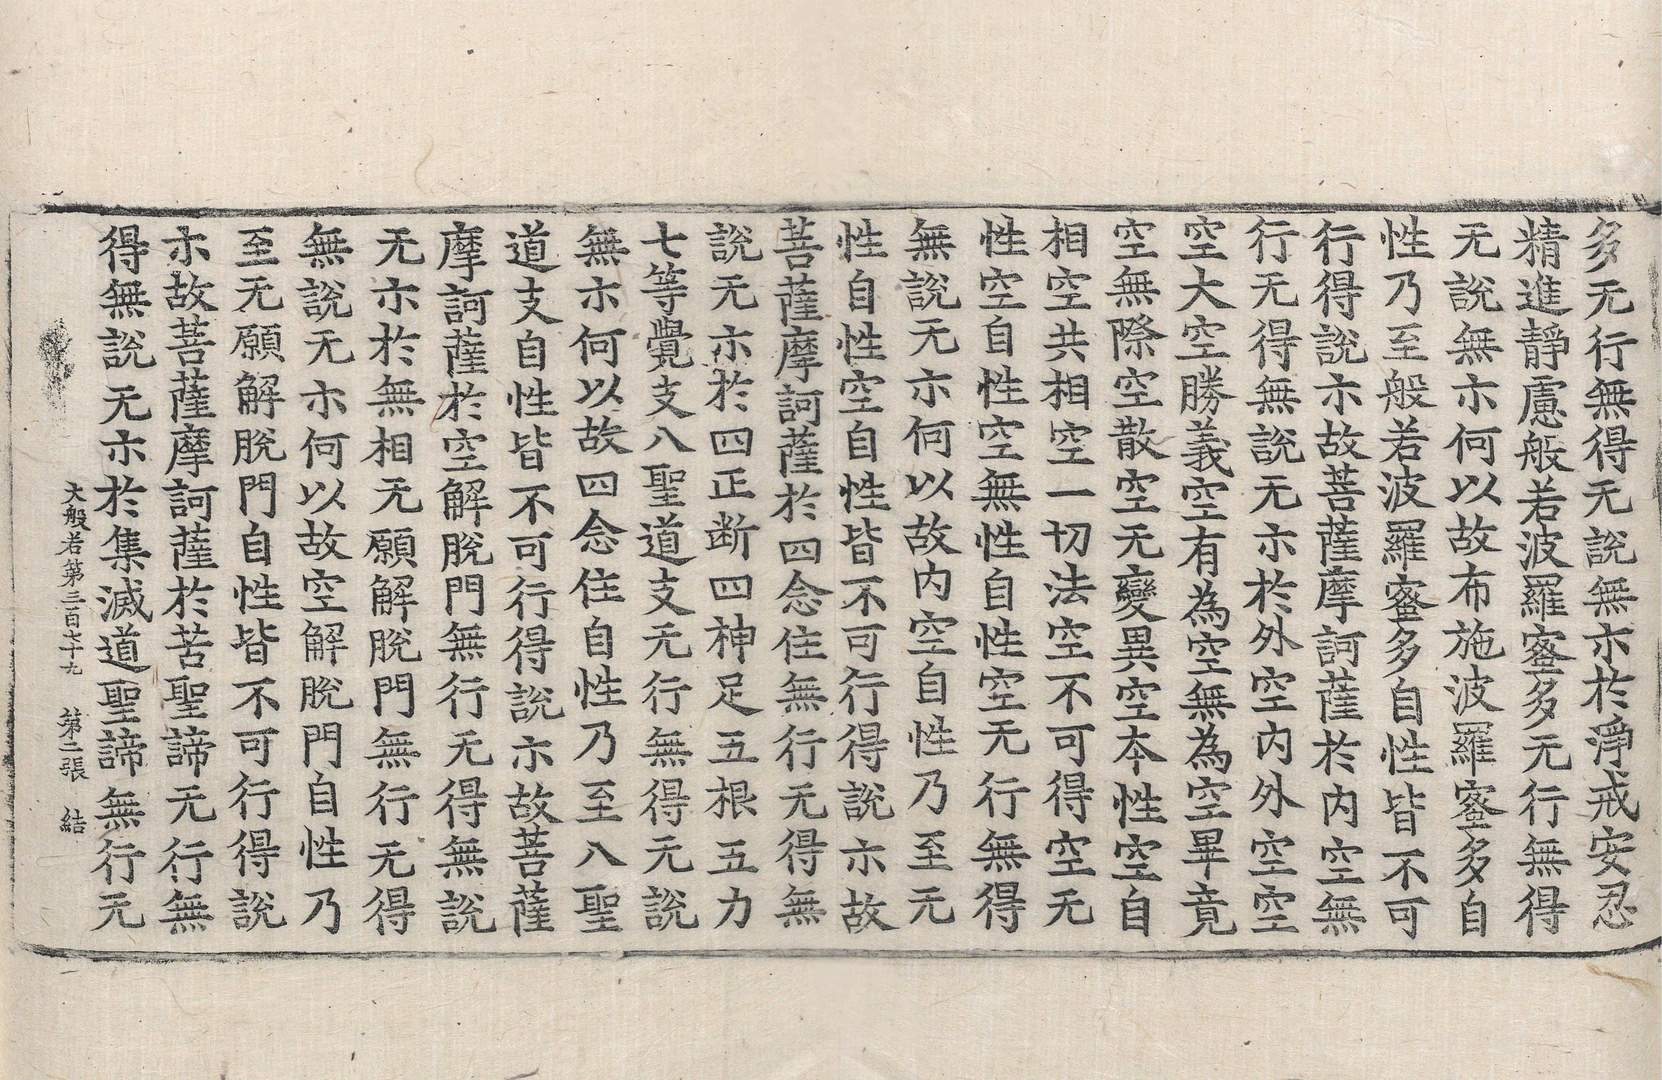 多无行無得无說無尒於淨戒安忍
精進靜慮般若波羅蜜多无行無得
无說無尒何以故布施波羅蜜多自
性乃至般若波羅蜜多自性皆不可
行得說尒故菩薩摩訶薩於內空無
行无得無說无尒於外空內外空空
空大空勝義空有為空無為空畢竟
空無際空散空无變異空本性空自
相空共相空一切法空不可得空无
性空自性空無性自性空无行無得
無說无尒何以故內空自性乃至无
性自性空自性皆不可行得說尒故
菩薩摩訶薩於四念住無行无得無
說无尒於四正断四神足五根五力
七等覺支八聖道支无行無得无說
無尒何以故四念住自性乃至八聖
道支自性皆不可行得說尒故菩薩
摩訶薩於空解脫門無行无得無說
无尒於無相无願解脫門無行无得
無說无尒何以故空解脫門自性乃
至无願解脫門自性皆不可行得說
尒故菩薩摩訶薩於苦聖諦无行無
得無說无尒於集滅道聖諦無行无
大般若第三百七十九 第二張 結